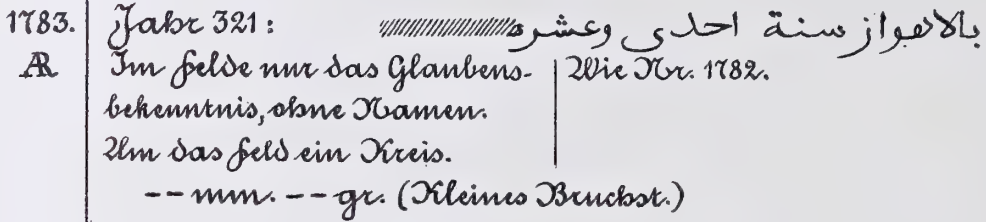 1783. Jahr 321: بالاهواز سنة احدى وعشره
AR Im Felde nur das Glaubens- | Wie Nr. 1782.
bekenntnis, ohne Namen.
Um das Feld ein Kreis.
-- mm. -- gr. (Kleines Bruchst.)